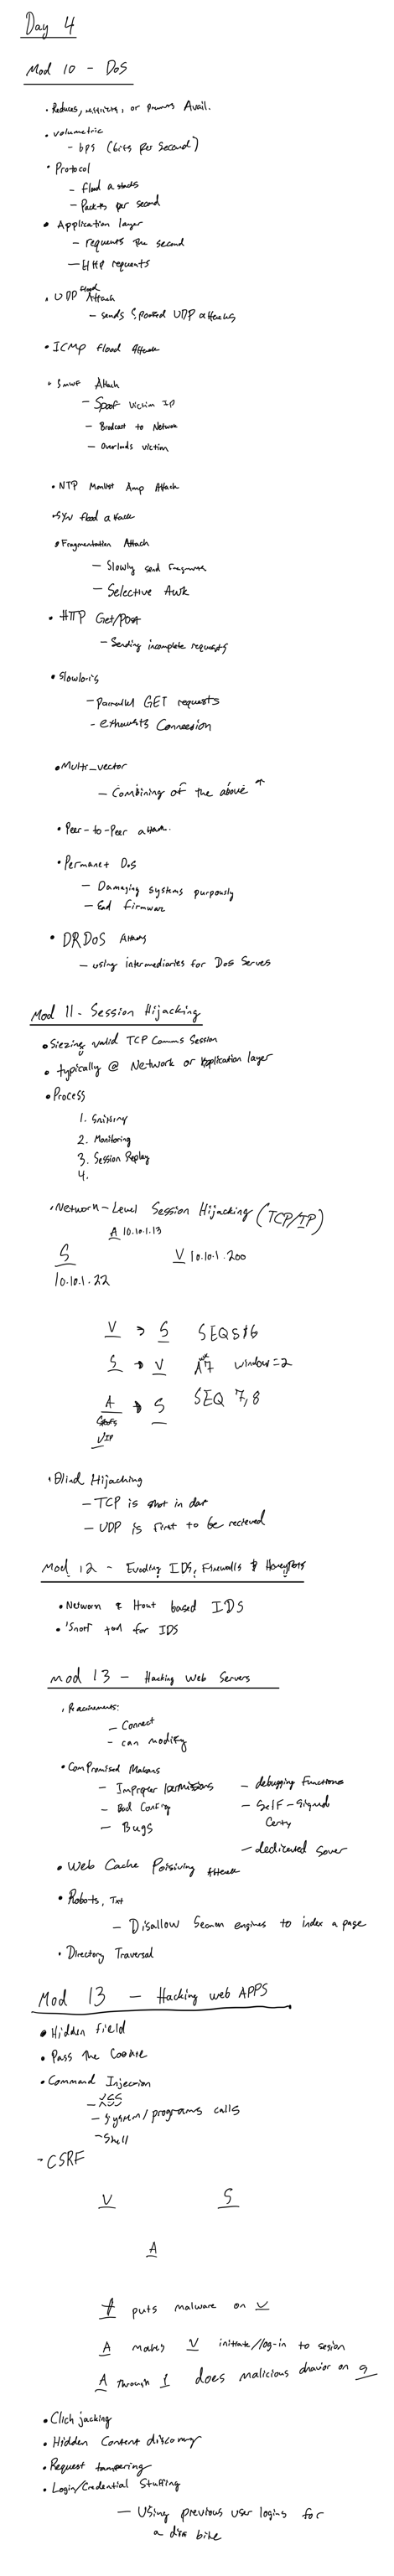 Day 4
Mod 10 - DoS
• Reduces, restricts, or prevents Avail.
• volumetric
- bps (bits per second)
• Protocol
- flood a stack
- Packets per second
• Application layer
- requests per second
- HTTP requests
• UDP flood Attack
- sends spoofed UDP attacks
• ICMP flood Attack
• Smurf Attack
- Spoof victim IP
- Brodcast to Network
- Overloads victim
• NTP Monlist Amp Attack
• SYN flood attack
• Fragmentation Attack
- Slowly send fragments
- Selective
• HTTP Get/Post
- Sending incomplete requests
• Slowloris
- parrallel GET requests
- exhausts Connection
• Multi-vector
- Combining of the above ↑
• Peer-to-Peer attack.
• Permanet DoS
- Damaging systems purposly
- firmware
• DRDoS Attacks
- using intermediaries for DoS Serves
Mod 11 - Session Hijacking
• Siezing valid TCP Comms Session
• typically @ Network or Application layer
• Process
1. Sniffing
2. Monitoring
3. Session Replay
4.
• Network-Level Session Hijacking (TCP/IP)
A 10.10.1.13
S V 10.10.1.200
10.10.1.22
V → S SEQ 5+6
S → V 7 window=2
A → S SEQ 7,8
Spoofs
V IP
• Blind Hijacking
- TCP is shot in dark
- UDP is first to be recieved
Mod 12 - Evading IDS, Firewalls & Honeypots
• Network & Host based IDS
• 'Snort' tool for IDS
mod 13 - Hacking Web Servers
• Requirements:
- Connect
- can modify
• Compromised
- Improper permissions - debugging Functions
- Bad Config - Self-Signed
- Bugs Certs
- dedicated server
• Web Cache Poisiving Attack
• Robots.txt
- Disallow Search engines to index a page
• Directory Traversal
Mod 13 - Hacking web APPS
• Hidden field
• Pass the Cookie
• Command Injection
- XSS
- System/programs calls
- Shell
- CSRF
V S
A
A puts malware on V
A makes V initiate/log-in to sesion
A through does malicious on
• Click jacking
• Hidden Content discovery
• Request tampering
• Login/Credential Stuffing
- Using previous user logins for
a diff